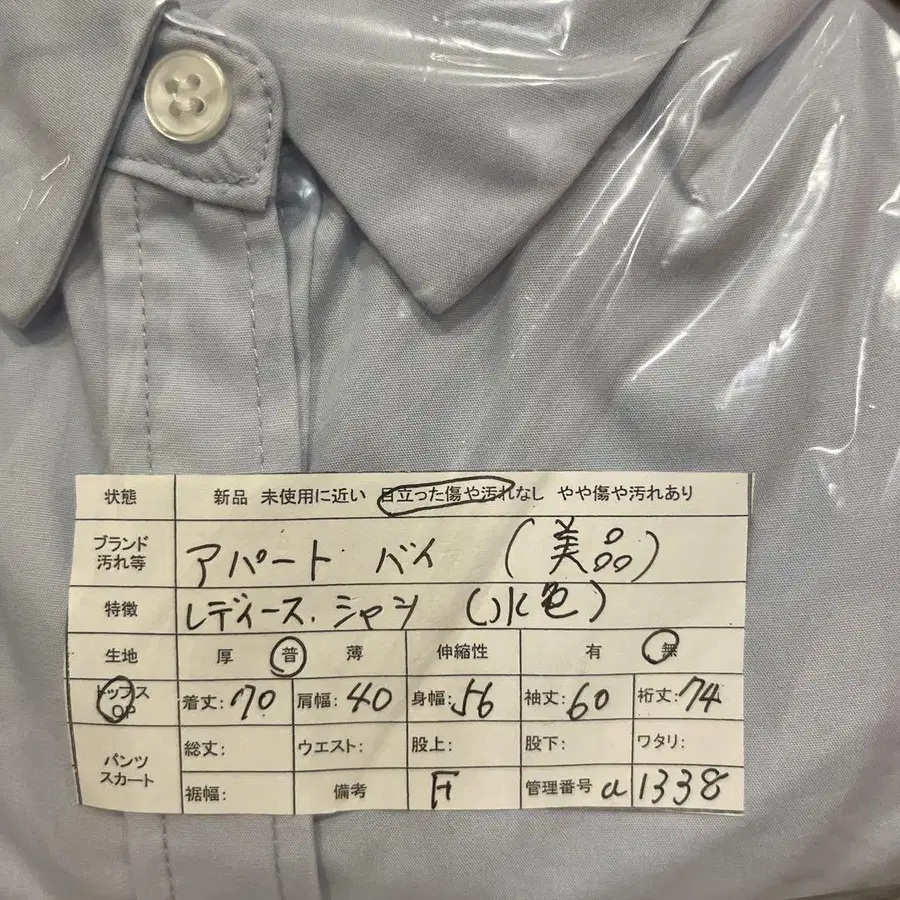 状態 新品 未使用に近い 目立った傷や汚れなし やや傷や汚れあり
ブランド 汚れ等 アパート バイ (美品)
特徴 レディース.シャツ (水色)
生地 厚 普 薄 伸縮性 有 無
トップス OP 着丈:70 肩幅:40 身幅:56 袖丈:60 裄丈:74
パンツ スカート 総丈: ウエスト: 股上: 股下: ワタリ:
裾幅: 備考 F 管理番号 a1338